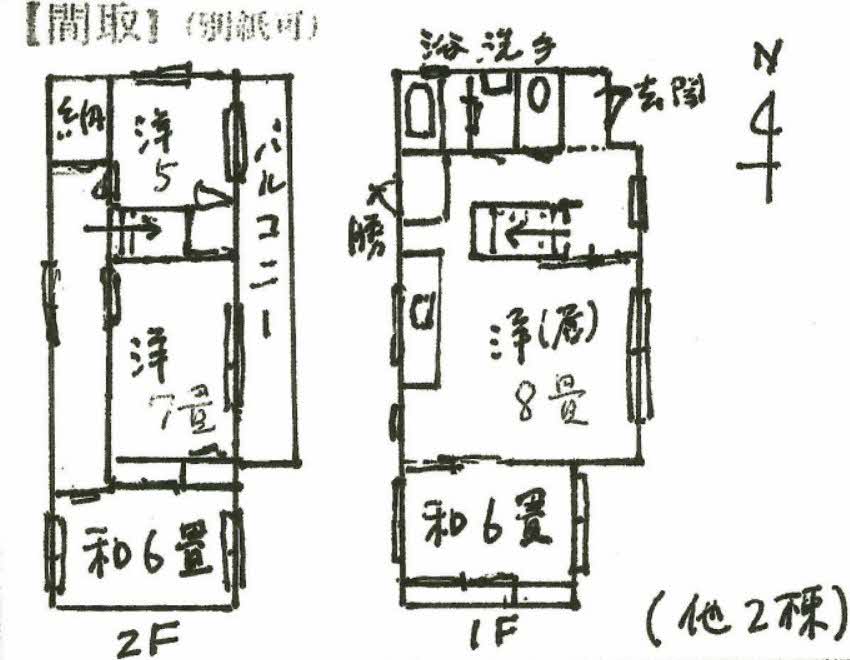 【間取】(別紙可)
浴 洗 手
N
玄関
納
洋
5
バルコニー
勝
洋
7畳
洋(居)
8畳
和6畳
和6畳
2F
1F
(他2棟)